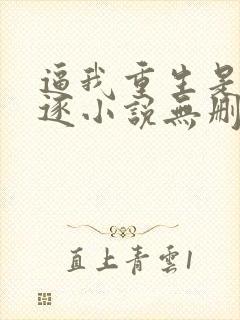 逼我重生是
逐小說無刪
直上青雲1